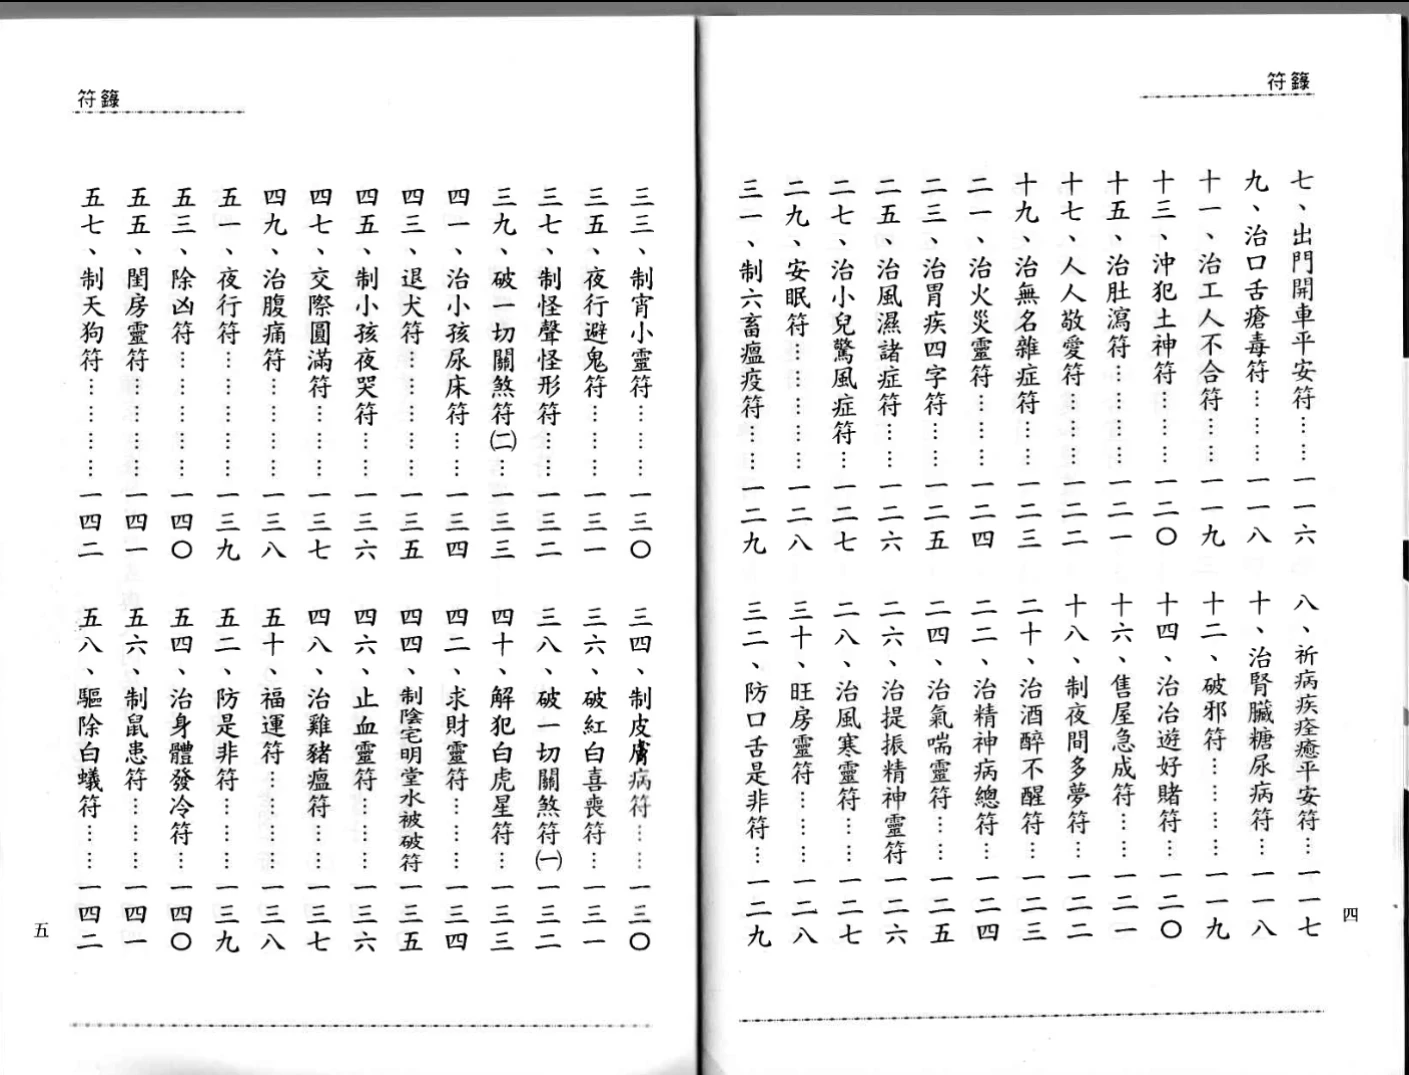 符籙
七、出門開車平安符……一一六
八、祈病疾痊癒平安符…一一七
九、治口舌瘡毒符………一一八
十、治腎臟糖尿病符…一一八
十一、治工人不合符……一一九
十二、破邪符…………一一九
十三、沖犯土神符………一二〇
十四、治冶遊好賭符…一二〇
十五、治肚瀉符…………一二一
十六、售屋急成符……一二一
十七、人人敬愛符………一二二
十八、制夜間多夢符…一二二
十九、治無名雜症符……一二三
二十、治酒醉不醒符…一二三
二一、治火災靈符………一二四
二二、治精神病總符…一二四
二三、治胃疾四字符……一二五
二四、治氣喘靈符……一二五
二五、治風濕諸症符……一二六
二六、治提振精神靈符一二六
二七、治小兒驚風症符…一二七
二八、治風寒靈符……一二七
二九、安眠符……………一二八
三十、旺房靈符………一二八
三一、制六畜瘟疫符……一二九
三二、防口舌是非符…一二九
四
符籙
三三、制宵小靈符………一三〇
三四、制皮膚病符……一三〇
三五、夜行避鬼符………一三一
三六、破紅白喜喪符…一三一
三七、制怪聲怪形符……一三二
三八、破一切關煞符㈠一三二
三九、破一切關煞符㈡…一三三
四十、解犯白虎星符…一三三
四一、治小孩尿床符……一三四
四二、求財靈符………一三四
四三、退犬符……………一三五
四四、制陰宅明堂水被破符一三五
四五、制小孩夜哭符……一三六
四六、止血靈符………一三六
四七、交際圓滿符………一三七
四八、治雞豬瘟符……一三七
四九、治腹痛符…………一三八
五十、福運符…………一三八
五一、夜行符……………一三九
五二、防是非符………一三九
五三、除凶符……………一四〇
五四、治身體發冷符…一四〇
五五、閨房靈符…………一四一
五六、制鼠患符………一四一
五七、制天狗符…………一四二
五八、驅除白蟻符……一四二
五